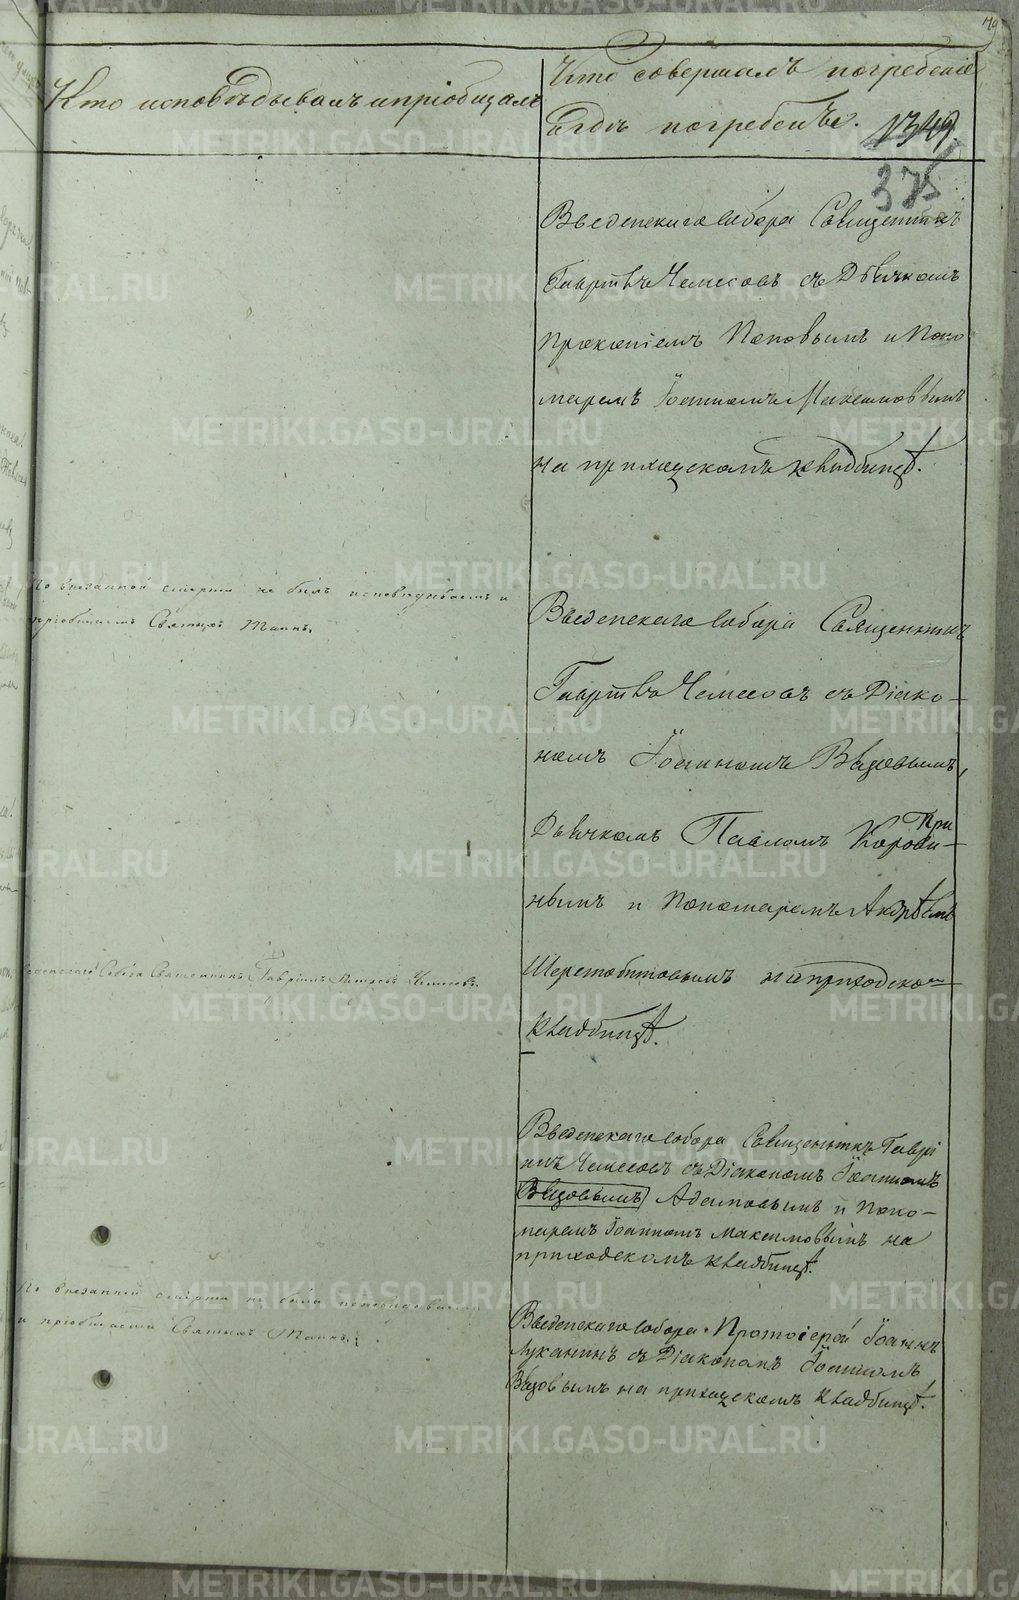 Кто исповѣдывалъ и пріобщалъ
Кто совершалъ погребеніе
и гдѣ погребены.
1349
375
Введенскаго собора Священникъ
Гавріилъ Чемесовъ съ Дьячкомъ
Прокопіемъ Поповымъ и Поно
маремъ Іоанномъ Максимовымъ
на приходскомъ кладбищѣ.
По внезапной смерти не былъ исповѣдываемъ и
пріобщаемъ Святыхъ Таинъ.
Введенскаго собора Священникъ
Гавріилъ Чемесовъ съ Діако-
номъ Іоанномъ
Дьячкомъ Павломъ
нымъ и Пономаремъ
на приходском
кладбищѣ.
Собора Священникъ Гавріилъ Чемесовъ.
Введенскаго собора Священникъ Гаврі
илъ Чемесовъ съ Діакономъ Іоанномъ
Адамовымъ и Поно-
маремъ Іоанномъ Максимовымъ на
приходскомъ кладбищѣ.
По внезапной смерти не была исповѣдываема
и пріобщаема Святыхъ Таинъ.
Введенскаго собора Протоіерей Іоаннъ
Луканинъ съ Діакономъ Іоанномъ
на приходскомъ кладбищѣ.
METRIKI.GASO-URAL.RU